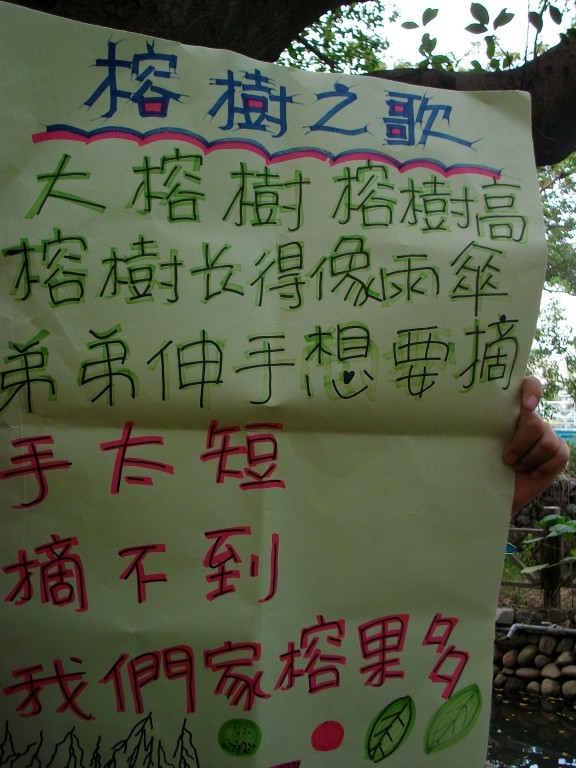 榕樹之歌
大榕樹榕樹搞
榕樹长得像雨傘
弟弟伸手想要摘
手太短
摘不到
我們家榕果多